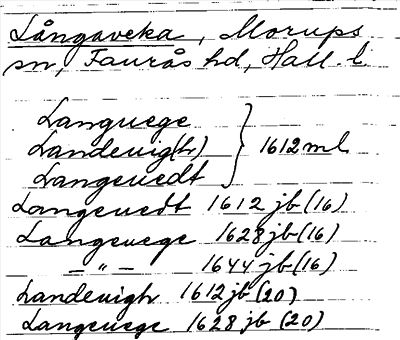 Långaveka, Morups
sn, Faurås hd, Hall. l
Languege
Landeuig(h) } 1612 ml
Langeuedt
Langeuedt 1612 jb (16)
Langeuege 1628 jb (16)
– " – 1644 jb (16)
Landeuigh 1612 jb (20)
Langeuege 1628 jb (20)